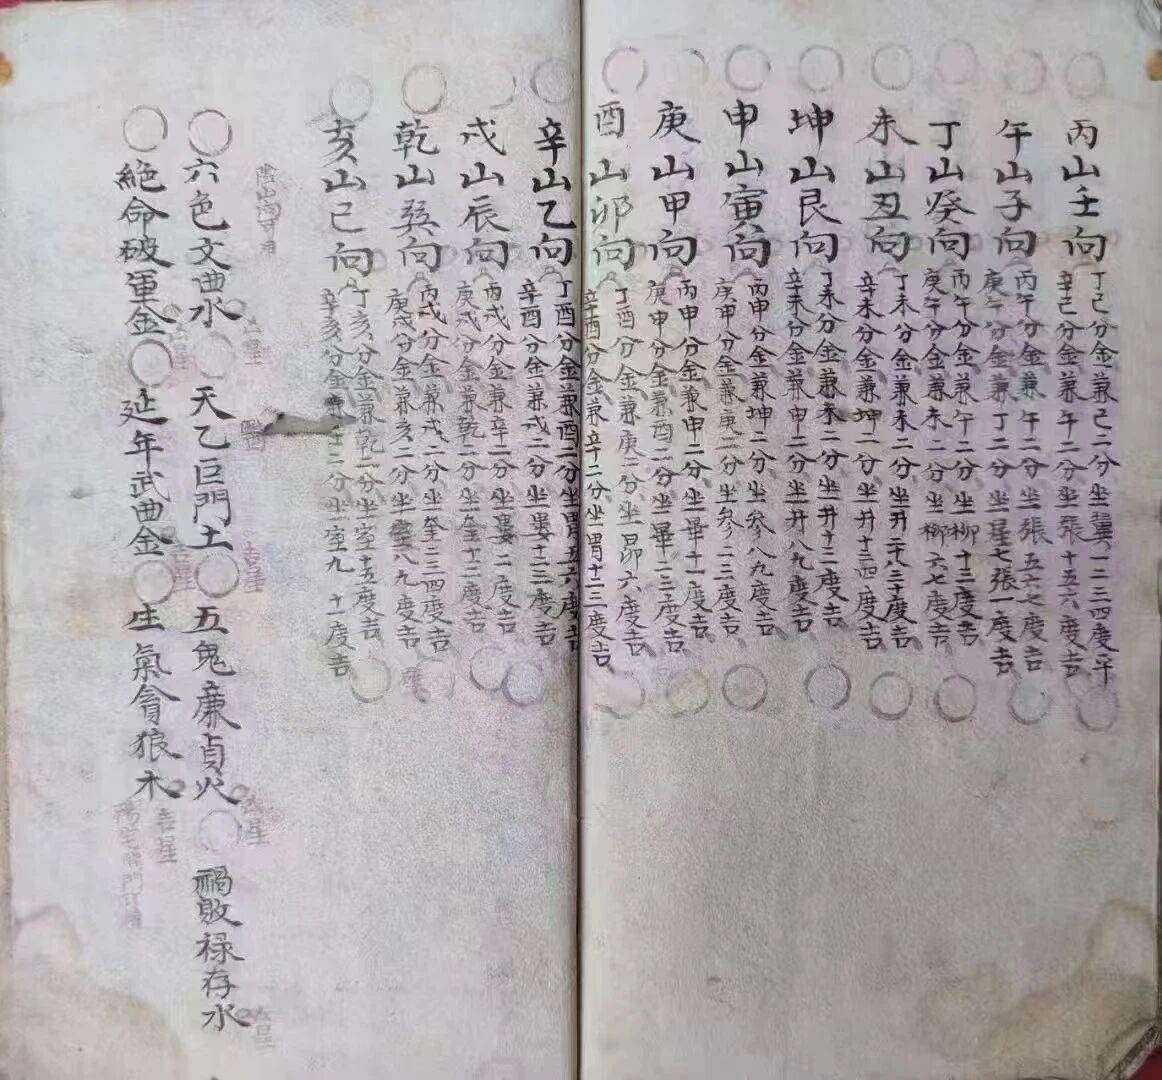 丙山壬向
丁巳分金兼巳二分坐翼一二三四度午
辛巳分金兼午二分坐張十五六度吉
午山子向
丙午分金兼午二分坐張五六七度吉
庚午分金兼丁二分坐星七張一度吉
丁山癸向
丙午分金兼午二分坐柳十三度吉
庚午分金兼未二分坐柳六七度吉
未山丑向
丁未分金兼未二分坐井二十八三十度吉
辛未分金兼坤二分坐井十三四度吉
坤山艮向
丁未分金兼未二分坐井十二度吉
辛未分金兼申二分坐井八九度吉
申山寅向
丙申分金兼坤二分坐參八九度吉
庚申分金兼庚二分坐參二三度吉
庚山甲向
丙申分金兼申二分坐畢十一度吉
庚申分金兼酉二分坐畢二三度吉
酉山卯向
丁酉分金兼庚二分坐昴六度吉
辛酉分金兼辛二分坐胃十三度吉
辛山乙向
丁酉分金兼酉二分坐胃五六度吉
辛酉分金兼戌二分坐婁十三度吉
戌山辰向
丙戌分金兼辛二分坐婁二度吉
庚戌分金兼乾二分坐奎十二度吉
乾山巽向
丙戌分金兼戌二分坐奎三四度吉
庚戌分金兼亥二分坐壁八九度吉
亥山巳向
丁亥分金兼乾二分坐室十五度吉
辛亥分金兼壬二分坐室九十一度吉
六色文曲水 天乙巨門土 吉星 五鬼廉貞火 禍敗禄存水
絕命破軍金 延年武曲金 吉星 生氣貪狼木 吉星